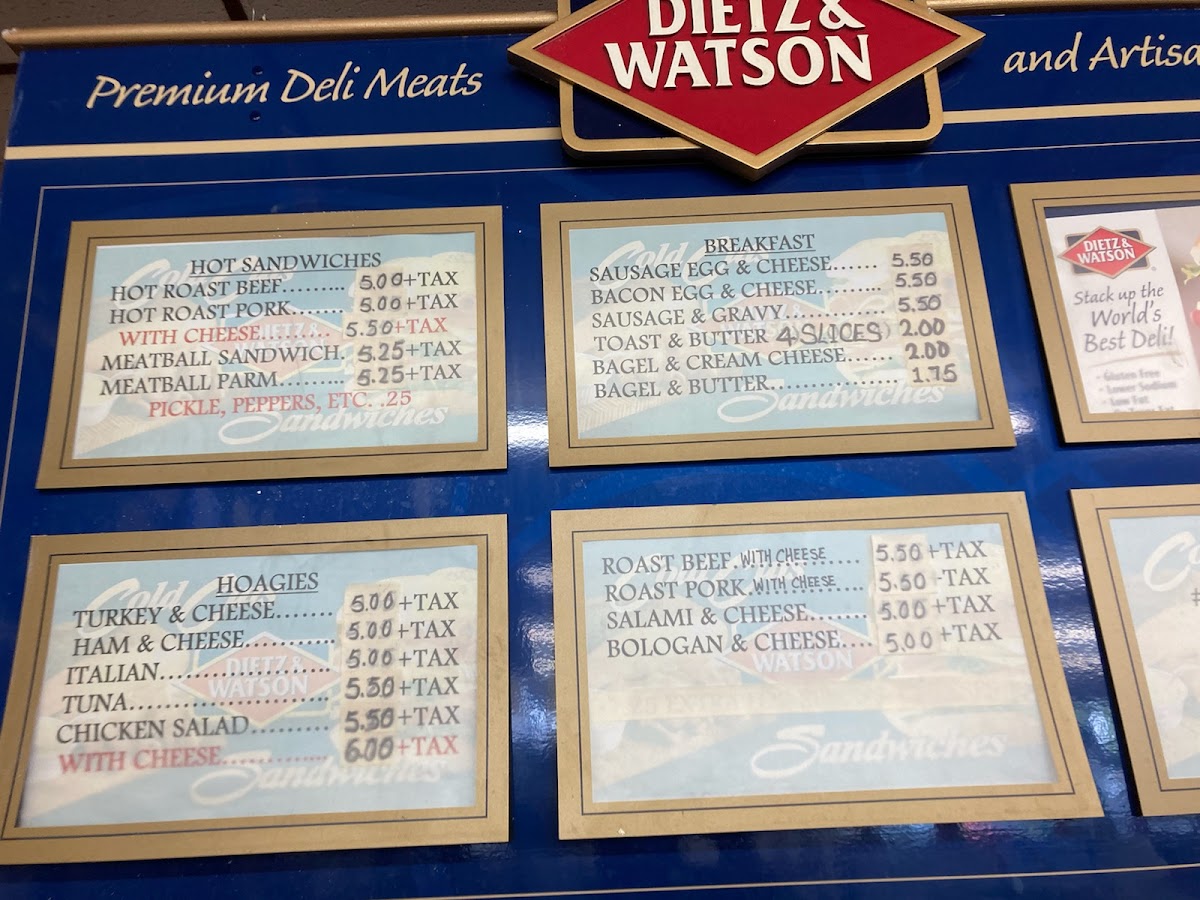 Premium Deli Meats
DIETZ &
WATSON
and Artisa
HOT SANDWICHES
HOT ROAST BEEF........ 5.00+TAX
HOT ROAST PORK........ 5.00+TAX
WITH CHEESE......... 5.50+TAX
MEATBALL SANDWICH. 5.25+TAX
MEATBALL PARM......... 5.25+TAX
PICKLE, PEPPERS, ETC. .25
Sandwiches
BREAKFAST
SAUSAGE EGG & CHEESE...... 5.50
BACON EGG & CHEESE......... 5.50
SAUSAGE & GRAVY............... 5.50
TOAST & BUTTER 4 SLICES 2.00
BAGEL & CREAM CHEESE...... 2.00
BAGEL & BUTTER.................. 1.75
Sandwiches
DIETZ &
WATSON
Stack up the
World's
Best Deli!
- Gluten Free
- Lower Sodium
- Low Fat
HOAGIES
TURKEY & CHEESE...... 5.00+TAX
HAM & CHEESE.......... 5.00+TAX
ITALIAN..................... 5.00+TAX
TUNA......................... 5.50+TAX
CHICKEN SALAD......... 5.50+TAX
WITH CHEESE............ 6.00+TAX
DIETZ &
WATSON
Sandwiches
ROAST BEEF. WITH CHEESE..... 5.50+TAX
ROAST PORK. WITH CHEESE.... 5.50+TAX
SALAMI & CHEESE....... 5.00+TAX
BOLOGAN & CHEESE.... 5.00+TAX
WATSON
Sandwiches